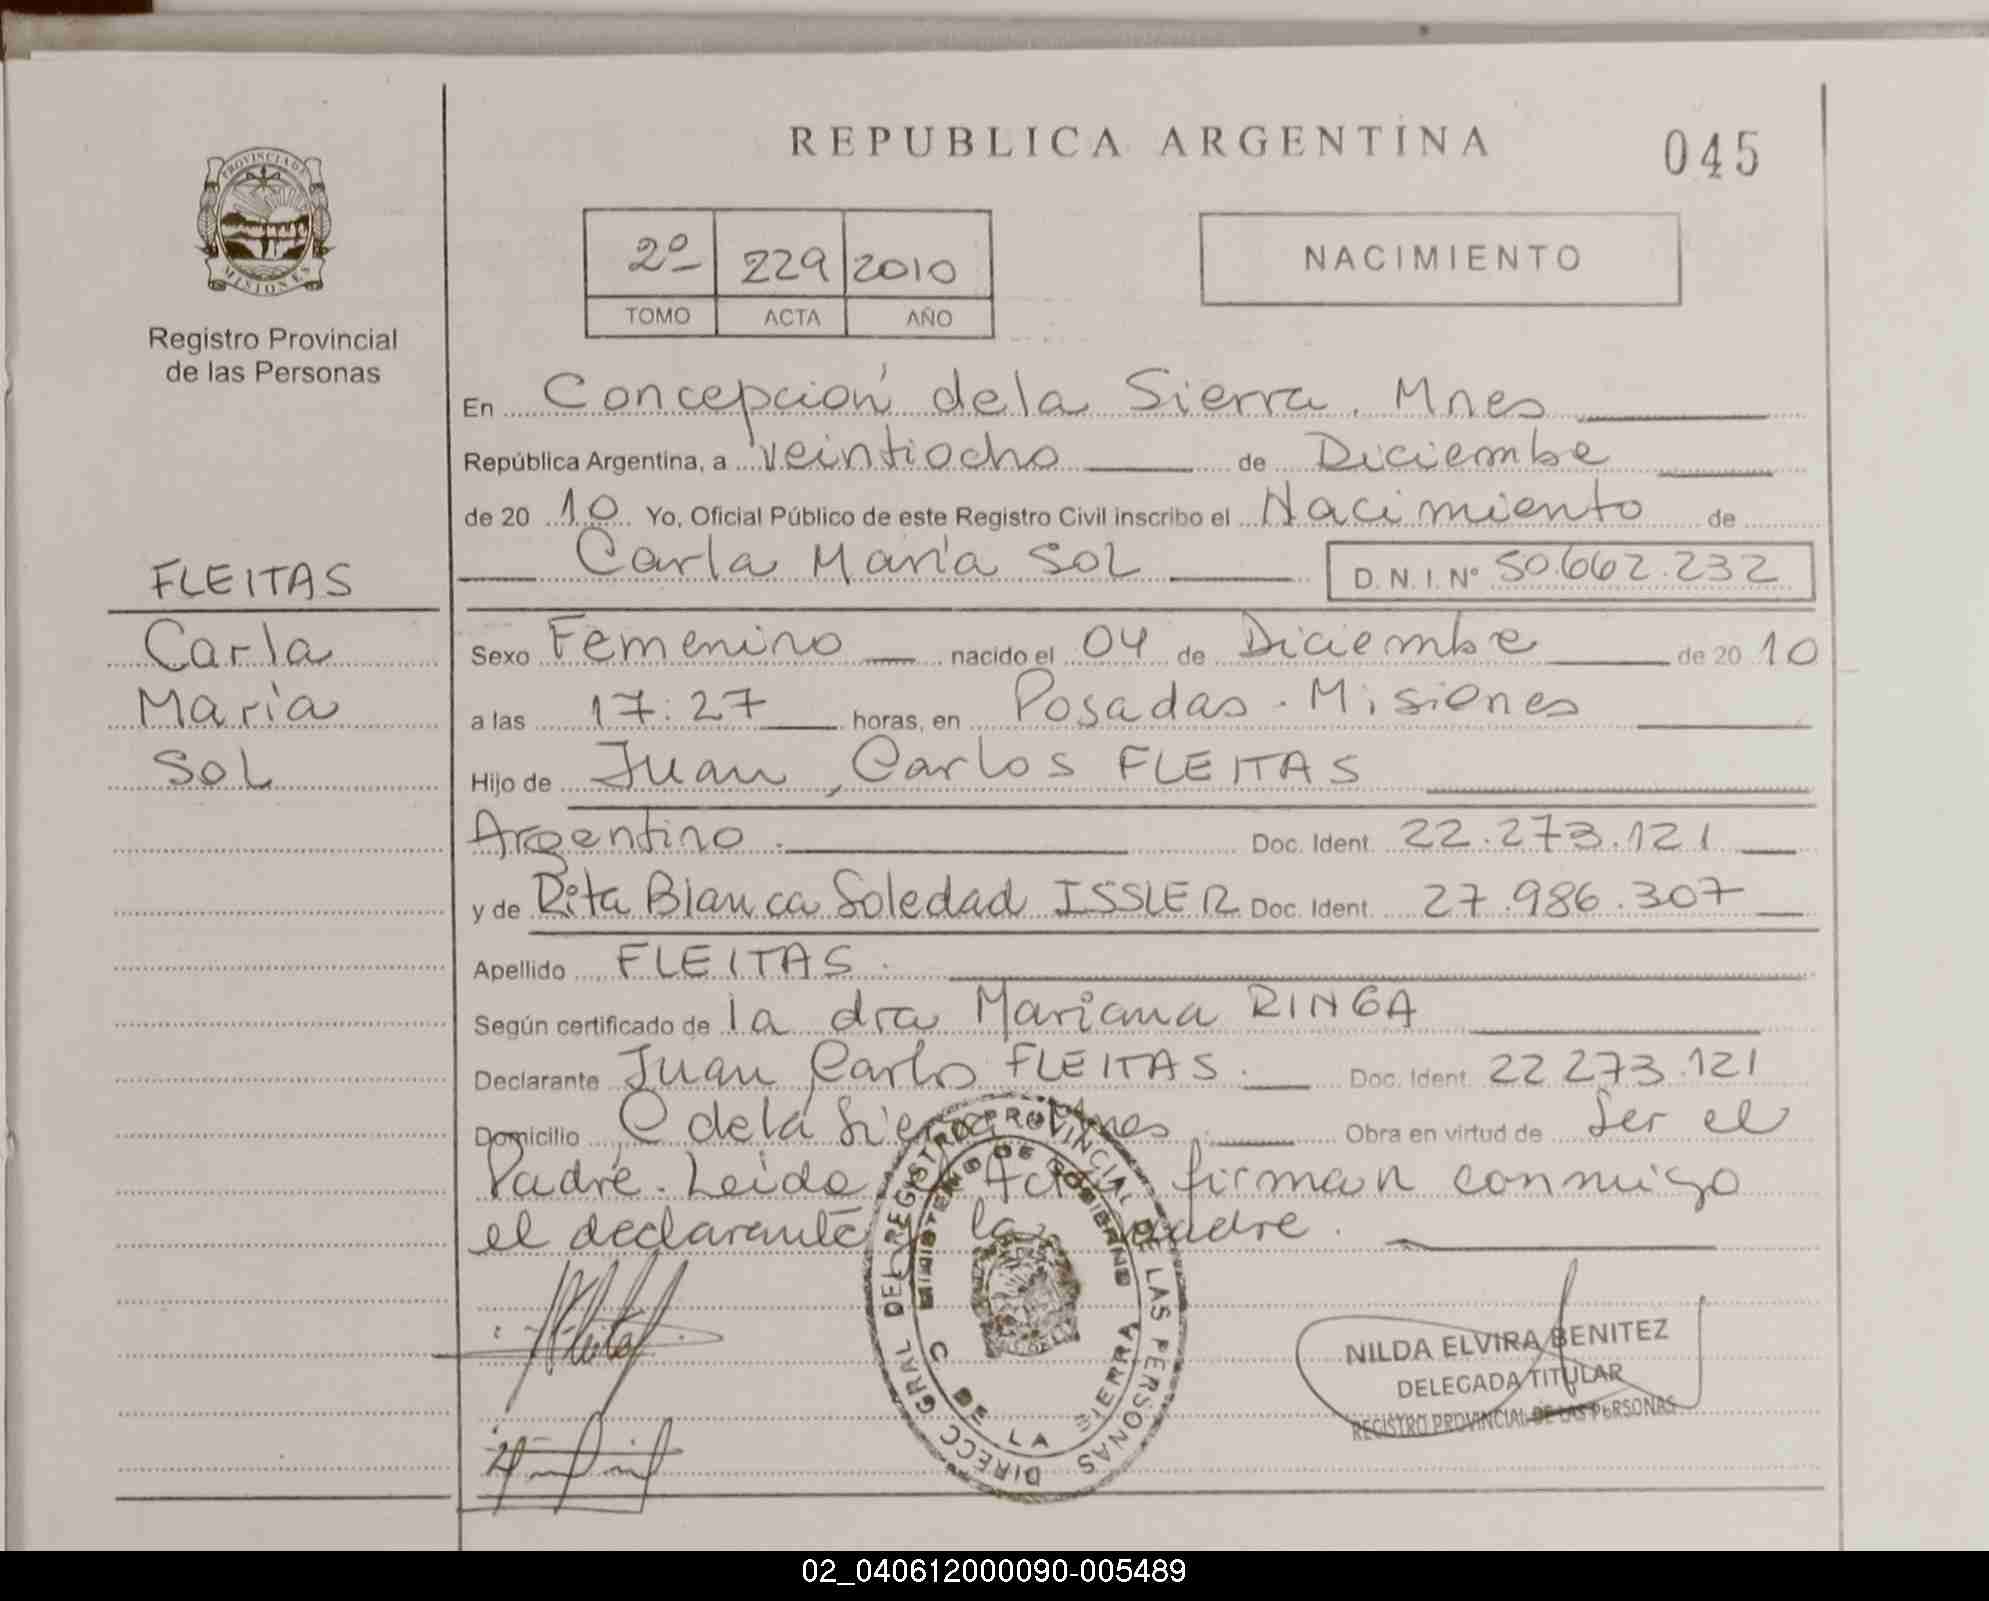 REPUBLICA ARGENTINA
045
PROVINCIA DE
MISIONES
Registro Provincial
de las Personas
2º 229 2010
TOMO ACTA AÑO
NACIMIENTO
En Concepción de la Sierra. Mnes
República Argentina, a veintiocho de Diciembe
de 20 10 Yo, Oficial Público de este Registro Civil inscribo el Nacimiento de
Carla María SOL D.N.I.Nº 50.662.232
FLEITAS
Carla
María
SOL
Sexo Femenino nacido el 04 de Diciembre de 20 10
a las 17:27 horas, en Posadas - Misiones
Hijo de Juan Carlos FLEITAS
Argentino. Doc. Ident. 22.273.121
y de Rita Blanca Soledad ISSLER Doc. Ident. 27.986.307
Apellido FLEITAS.
Según certificado de la dra Mariana RINGA
Declarante Juan Carlos FLEITAS. Doc. Ident. 22 273.121
Domicilio C de la Sierra Mnes Obra en virtud de Ser el
Padre. Leida el Acta firman conmigo
el declarante y la madre.
DIRECC GRAL DEL REGISTRO PROVINCIAL DE LAS PERSONAS
MINISTERIO DE GOBIERNO
C DE LA SIERRA
NILDA ELVIRA BENITEZ
DELEGADA TITULAR
REGISTRO PROVINCIAL DE LAS PERSONAS
02_040612000090-005489